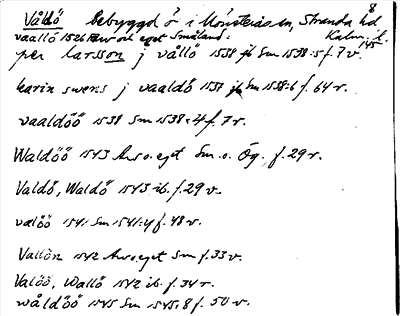 Våldö bebyggd ö i Mönsterås sn, Stranda hd 8
vaallö 1526 Arv och eget Småland: Kalm. l. 145
per larsson j vållö 1538 jb Sm 1538:5 f. 7 v.
karin swens j vaaldö 1537 jb Sm 1538:6 f. 64 r.
vaaldöö 1538 Sm 1538:4 f. 7 r.
Waldöö 1543 Arv o. eget Sm. o. Ög. f. 29 r.
Valdö, Waldö 1543 ib. f. 29 v.
valöö 1541 Sm 1541:4 f. 48 v.
Vallön 1542 Arv o. eget Sm f. 33 v.
Valöö, Wallö 1542 ib. f. 34 r.
wåldöö 1545 Sm 1545:8 f. 50 v.